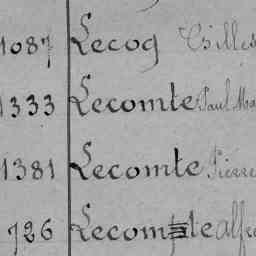 1087 Lecoq Gilles
1333 Lecomte Paul Ma
1381 Lecomte Pierre
726 Lecomte Alfre